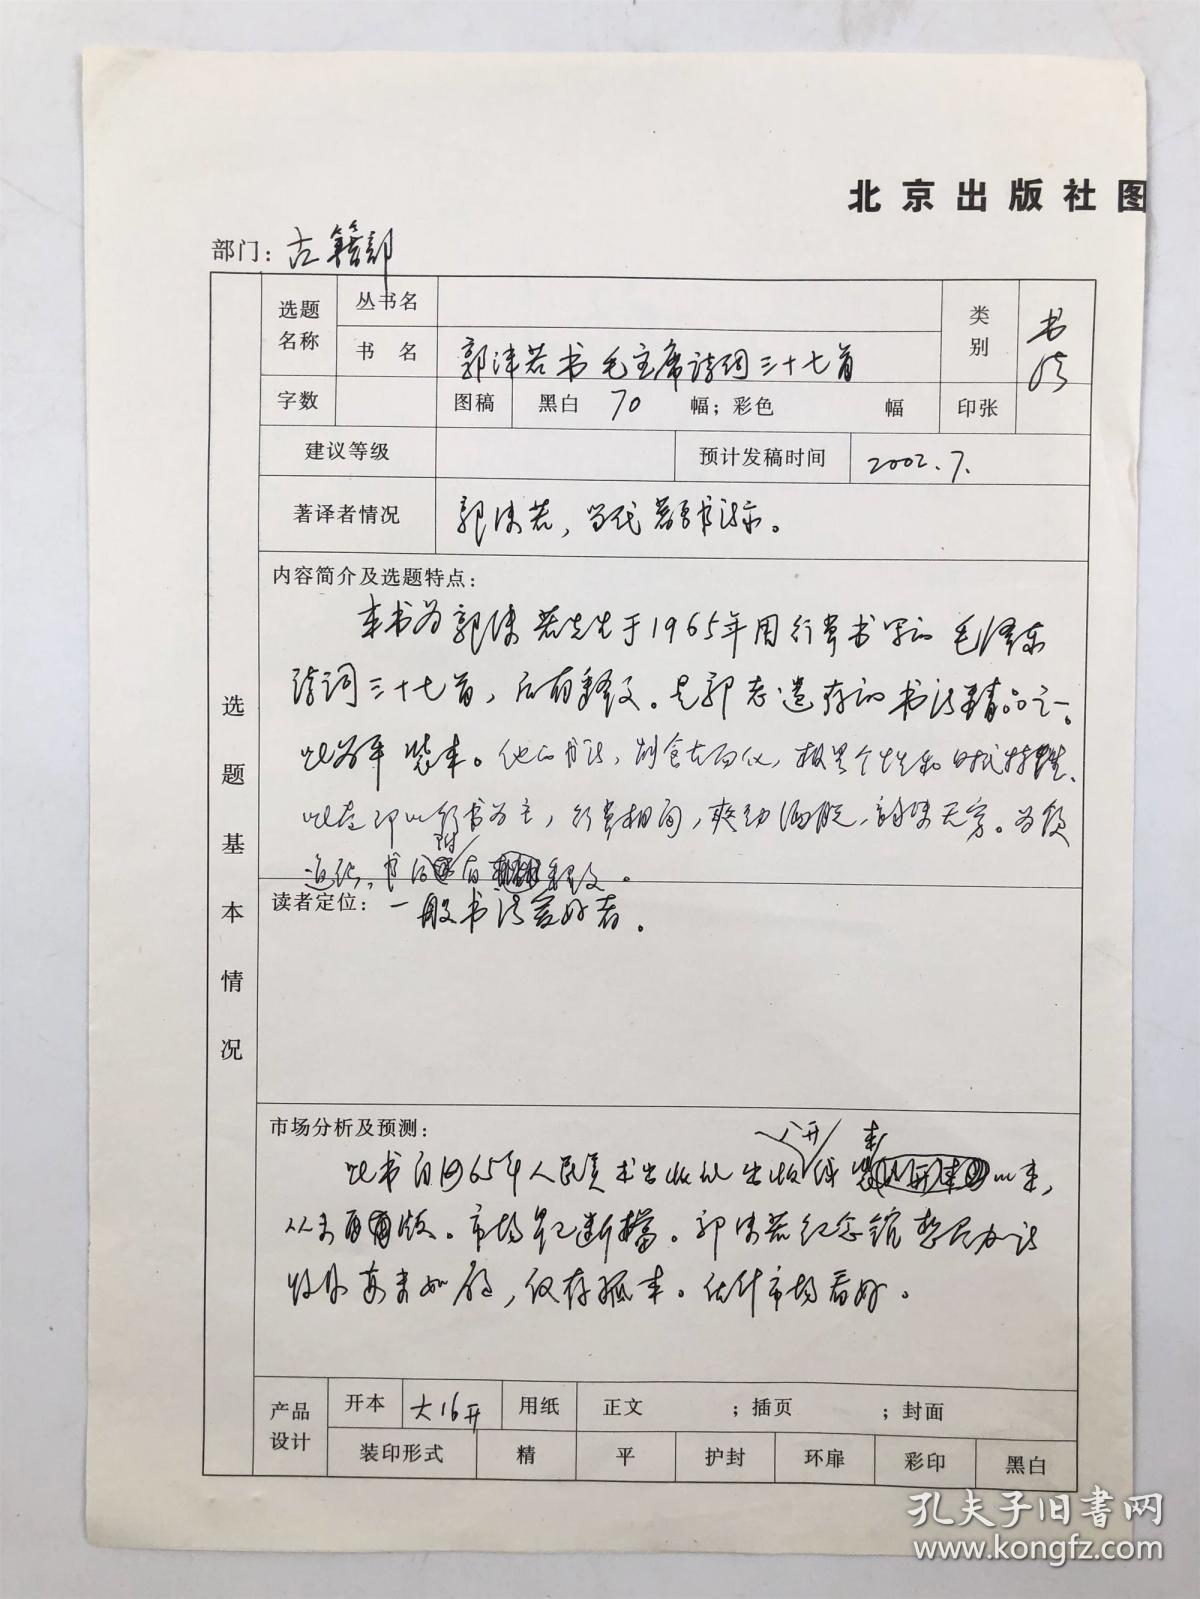 北京出版社图
部门：古籍部
选题名称
丛书名
书名
郭沫若书毛主席诗词三十七首
类别
书法
字数
图稿
黑白 70 幅；彩色 幅
印张
建议等级
预计发稿时间
2002.7.
著译者情况
郭沫若，当代著名书法家。
选题基本情况
内容简介及选题特点：
本书为郭沫若先生于1965年用行草书写的毛泽东
诗词三十七首，后有释文。是郭老遗存的书法精品之一。
此为平装本。他的书法，
以行书为主，行草相间，爽劲洒脱，韵味无穷。为便
书后附有释文。
读者定位：一般书法爱好者。
市场分析及预测：
此书自1965年人民美术出版社出版八开线装本以来，
从未再版。市场早已断档。郭沫若纪念馆
，仅存孤本。估计市场看好。
产品设计
开本
大16开
用纸
正文 ；插页 ；封面
装印形式
精
平
护封
环扉
彩印
黑白
孔夫子旧书网
www.kongfz.com